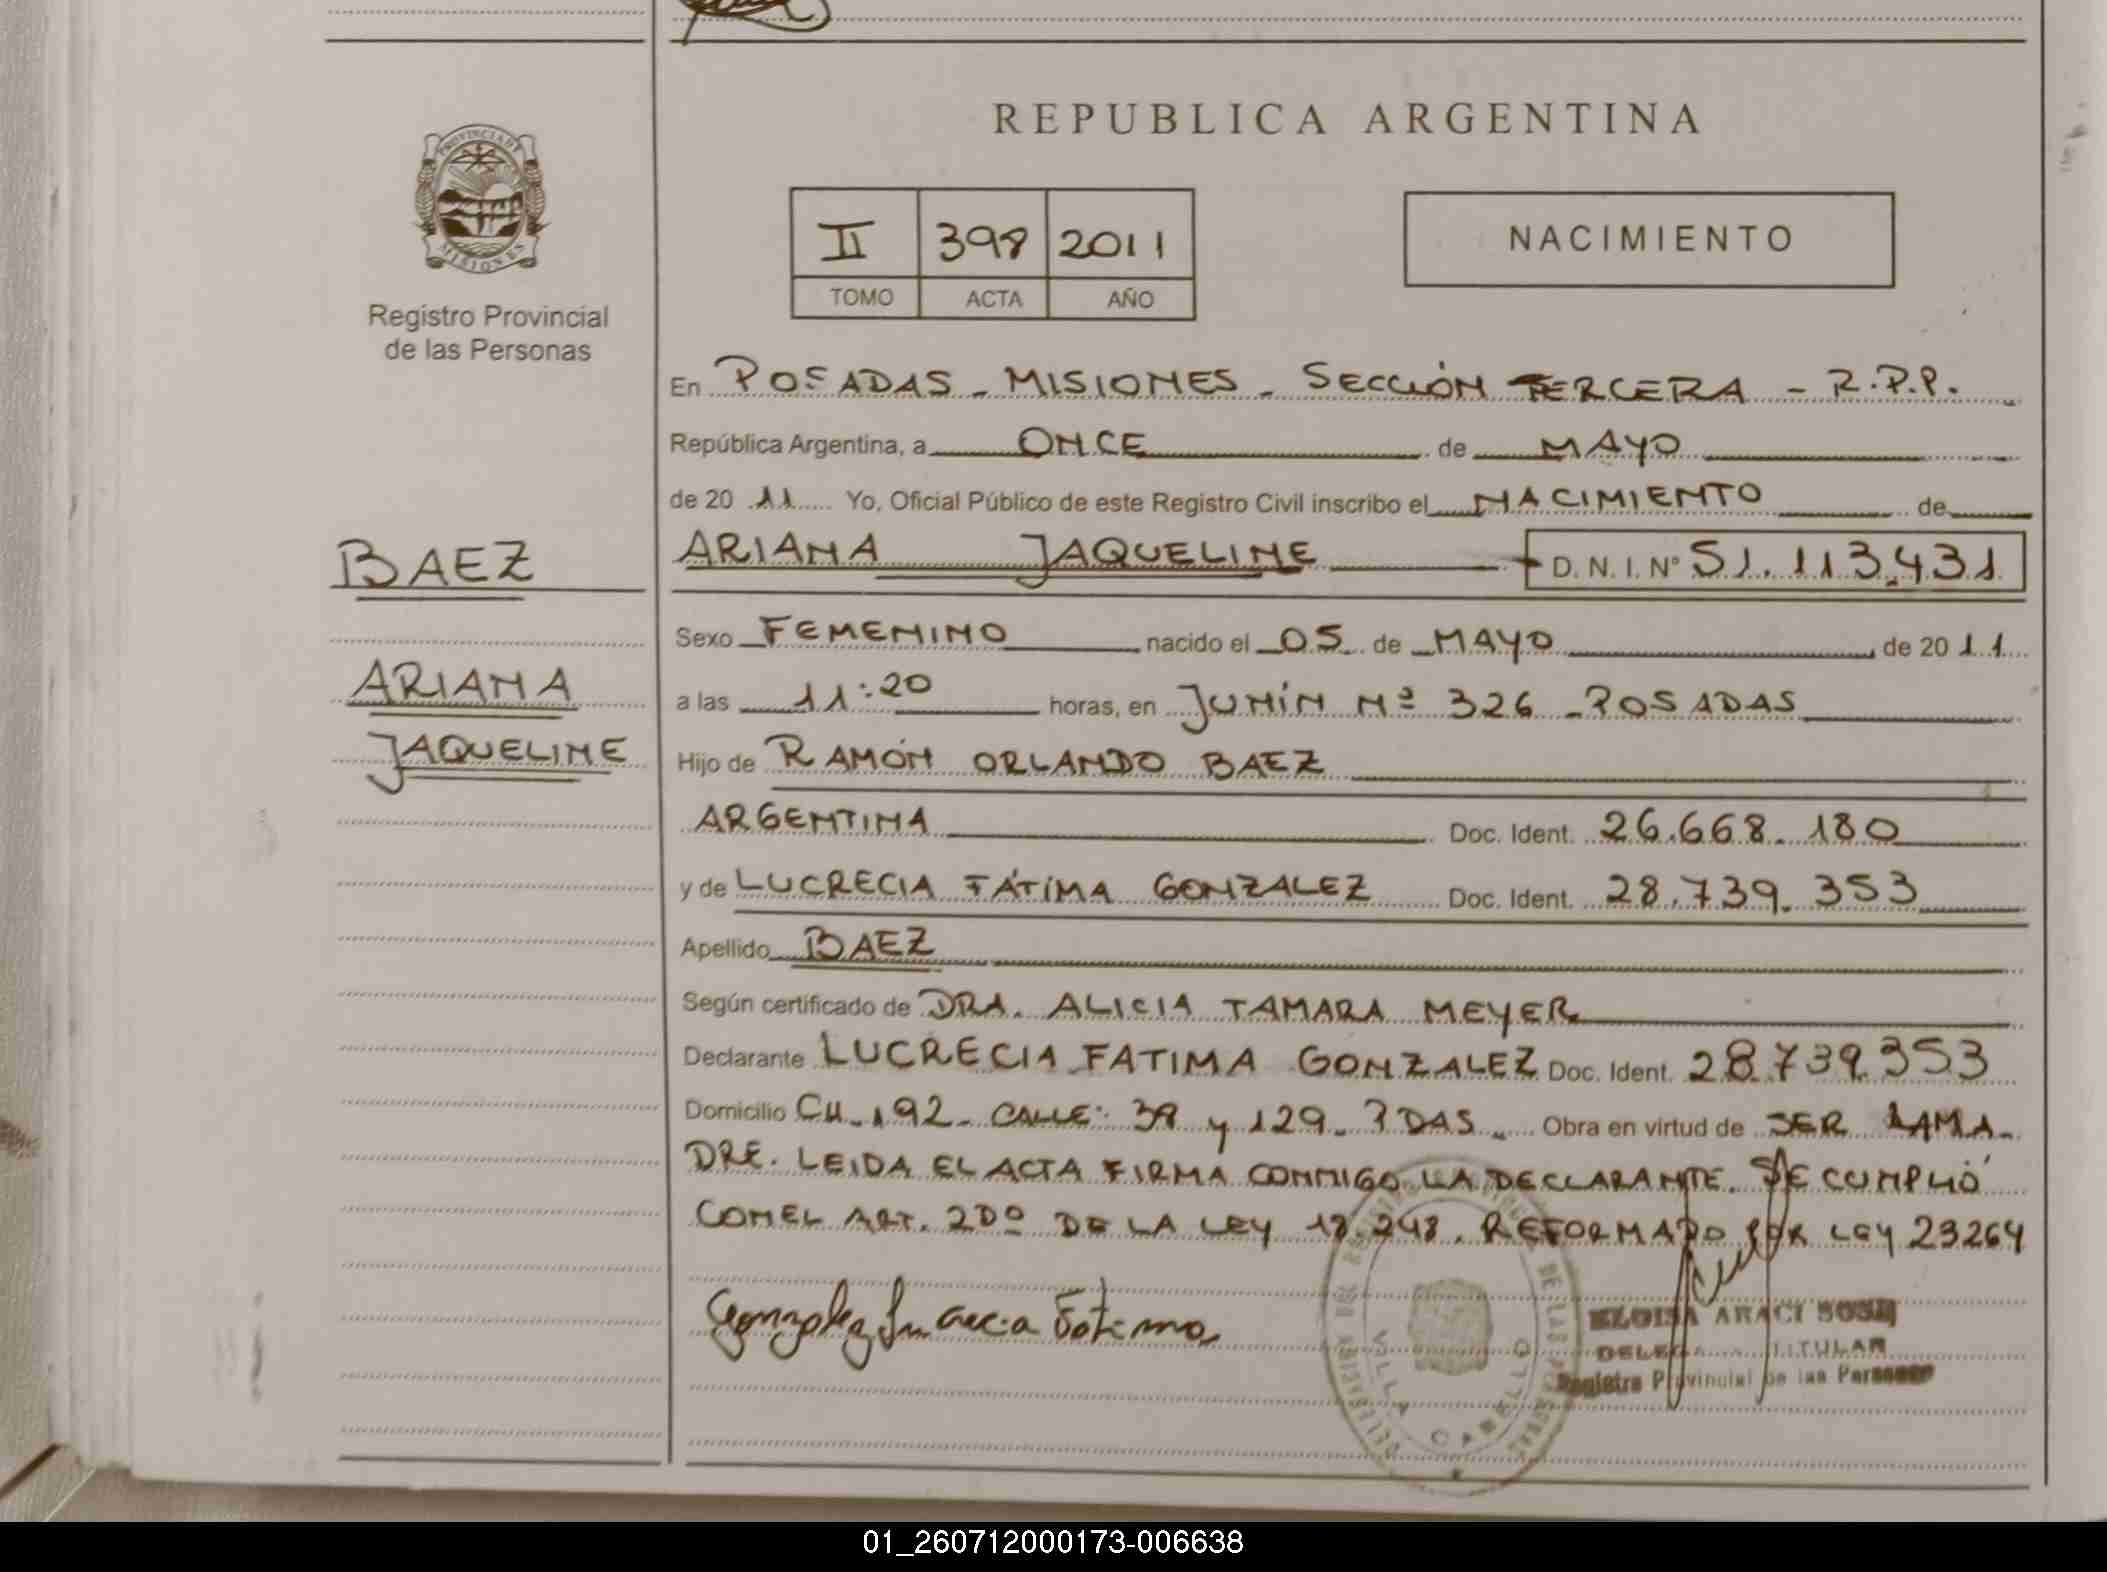 REPUBLICA ARGENTINA
PROVINCIA DE MISIONES
Registro Provincial
de las Personas
II 398 2011
TOMO ACTA AÑO
NACIMIENTO
En POSADAS - MISIONES - SECCIÓN TERCERA - R.P.P.
República Argentina, a ONCE de MAYO
de 20 11 Yo, Oficial Público de este Registro Civil inscribo el NACIMIENTO de
ARIANA JAQUELINE D. N. I. N° 51.113.431
BAEZ
ARIANA
JAQUELINE
Sexo FEMENINO nacido el 05 de MAYO de 20 11
a las 11:20 horas, en JUNÍN Nº 326 - POSADAS
Hijo de RAMÓN ORLANDO BAEZ
ARGENTINA Doc. Ident. 26.668.180
y de LUCRECIA FÁTIMA GONZALEZ Doc. Ident. 28.739.353
Apellido BAEZ
Según certificado de DRA. ALICIA TAMARA MEYER
Declarante LUCRECIA FATIMA GONZALEZ Doc. Ident. 28.739.353
Domicilio CH. 192 - CALLE: 39 y 129 - PDAS - Obra en virtud de SER LA MA-
DRE. LEIDA EL ACTA FIRMA CONMIGO LA DECLARANTE. SE CUMPLIÓ
CON EL ART. 2DO DE LA LEY 18.248. REFORMADO POR LEY 23264
Gonzalez Lucrecia Fatima
ELOISA ARACI SOSA
TITULAR
Registro Provincial de las Personas
VILLA CABELLO
01_260712000173-006638